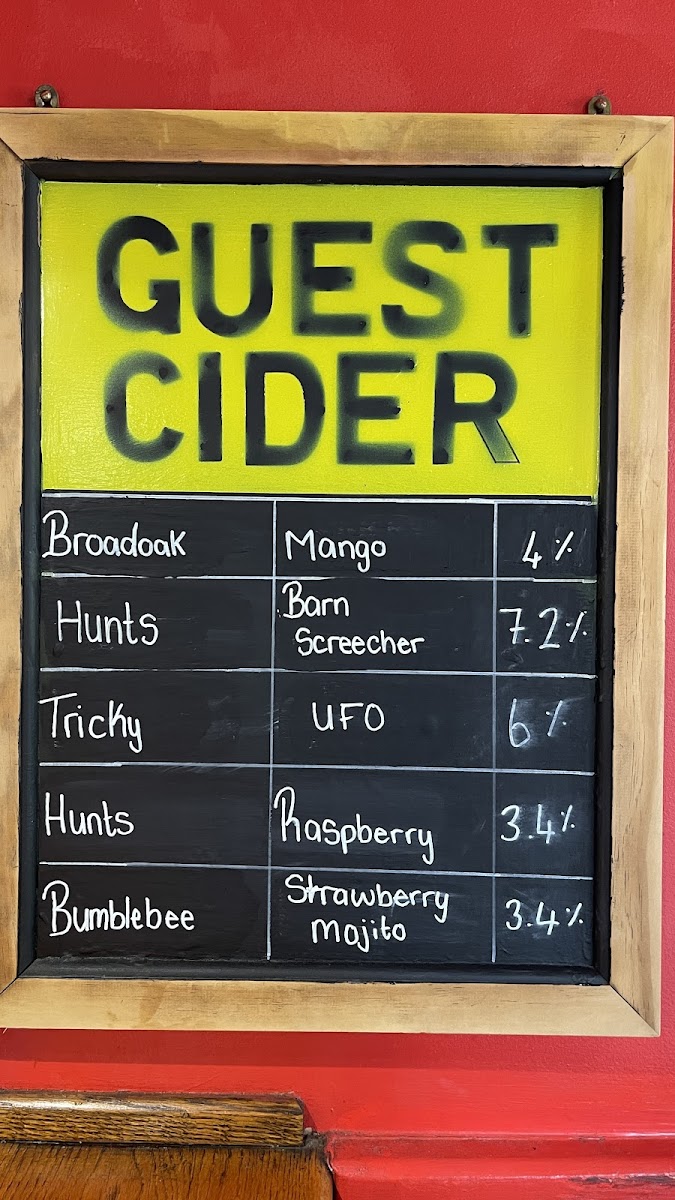 GUEST
CIDER
Broadoak Mango 4%
Hunts Barn
Screecher 7.2%
Tricky UFO 6%
Hunts Raspberry 3.4%
Bumblebee Strawberry
Mojito 3.4%